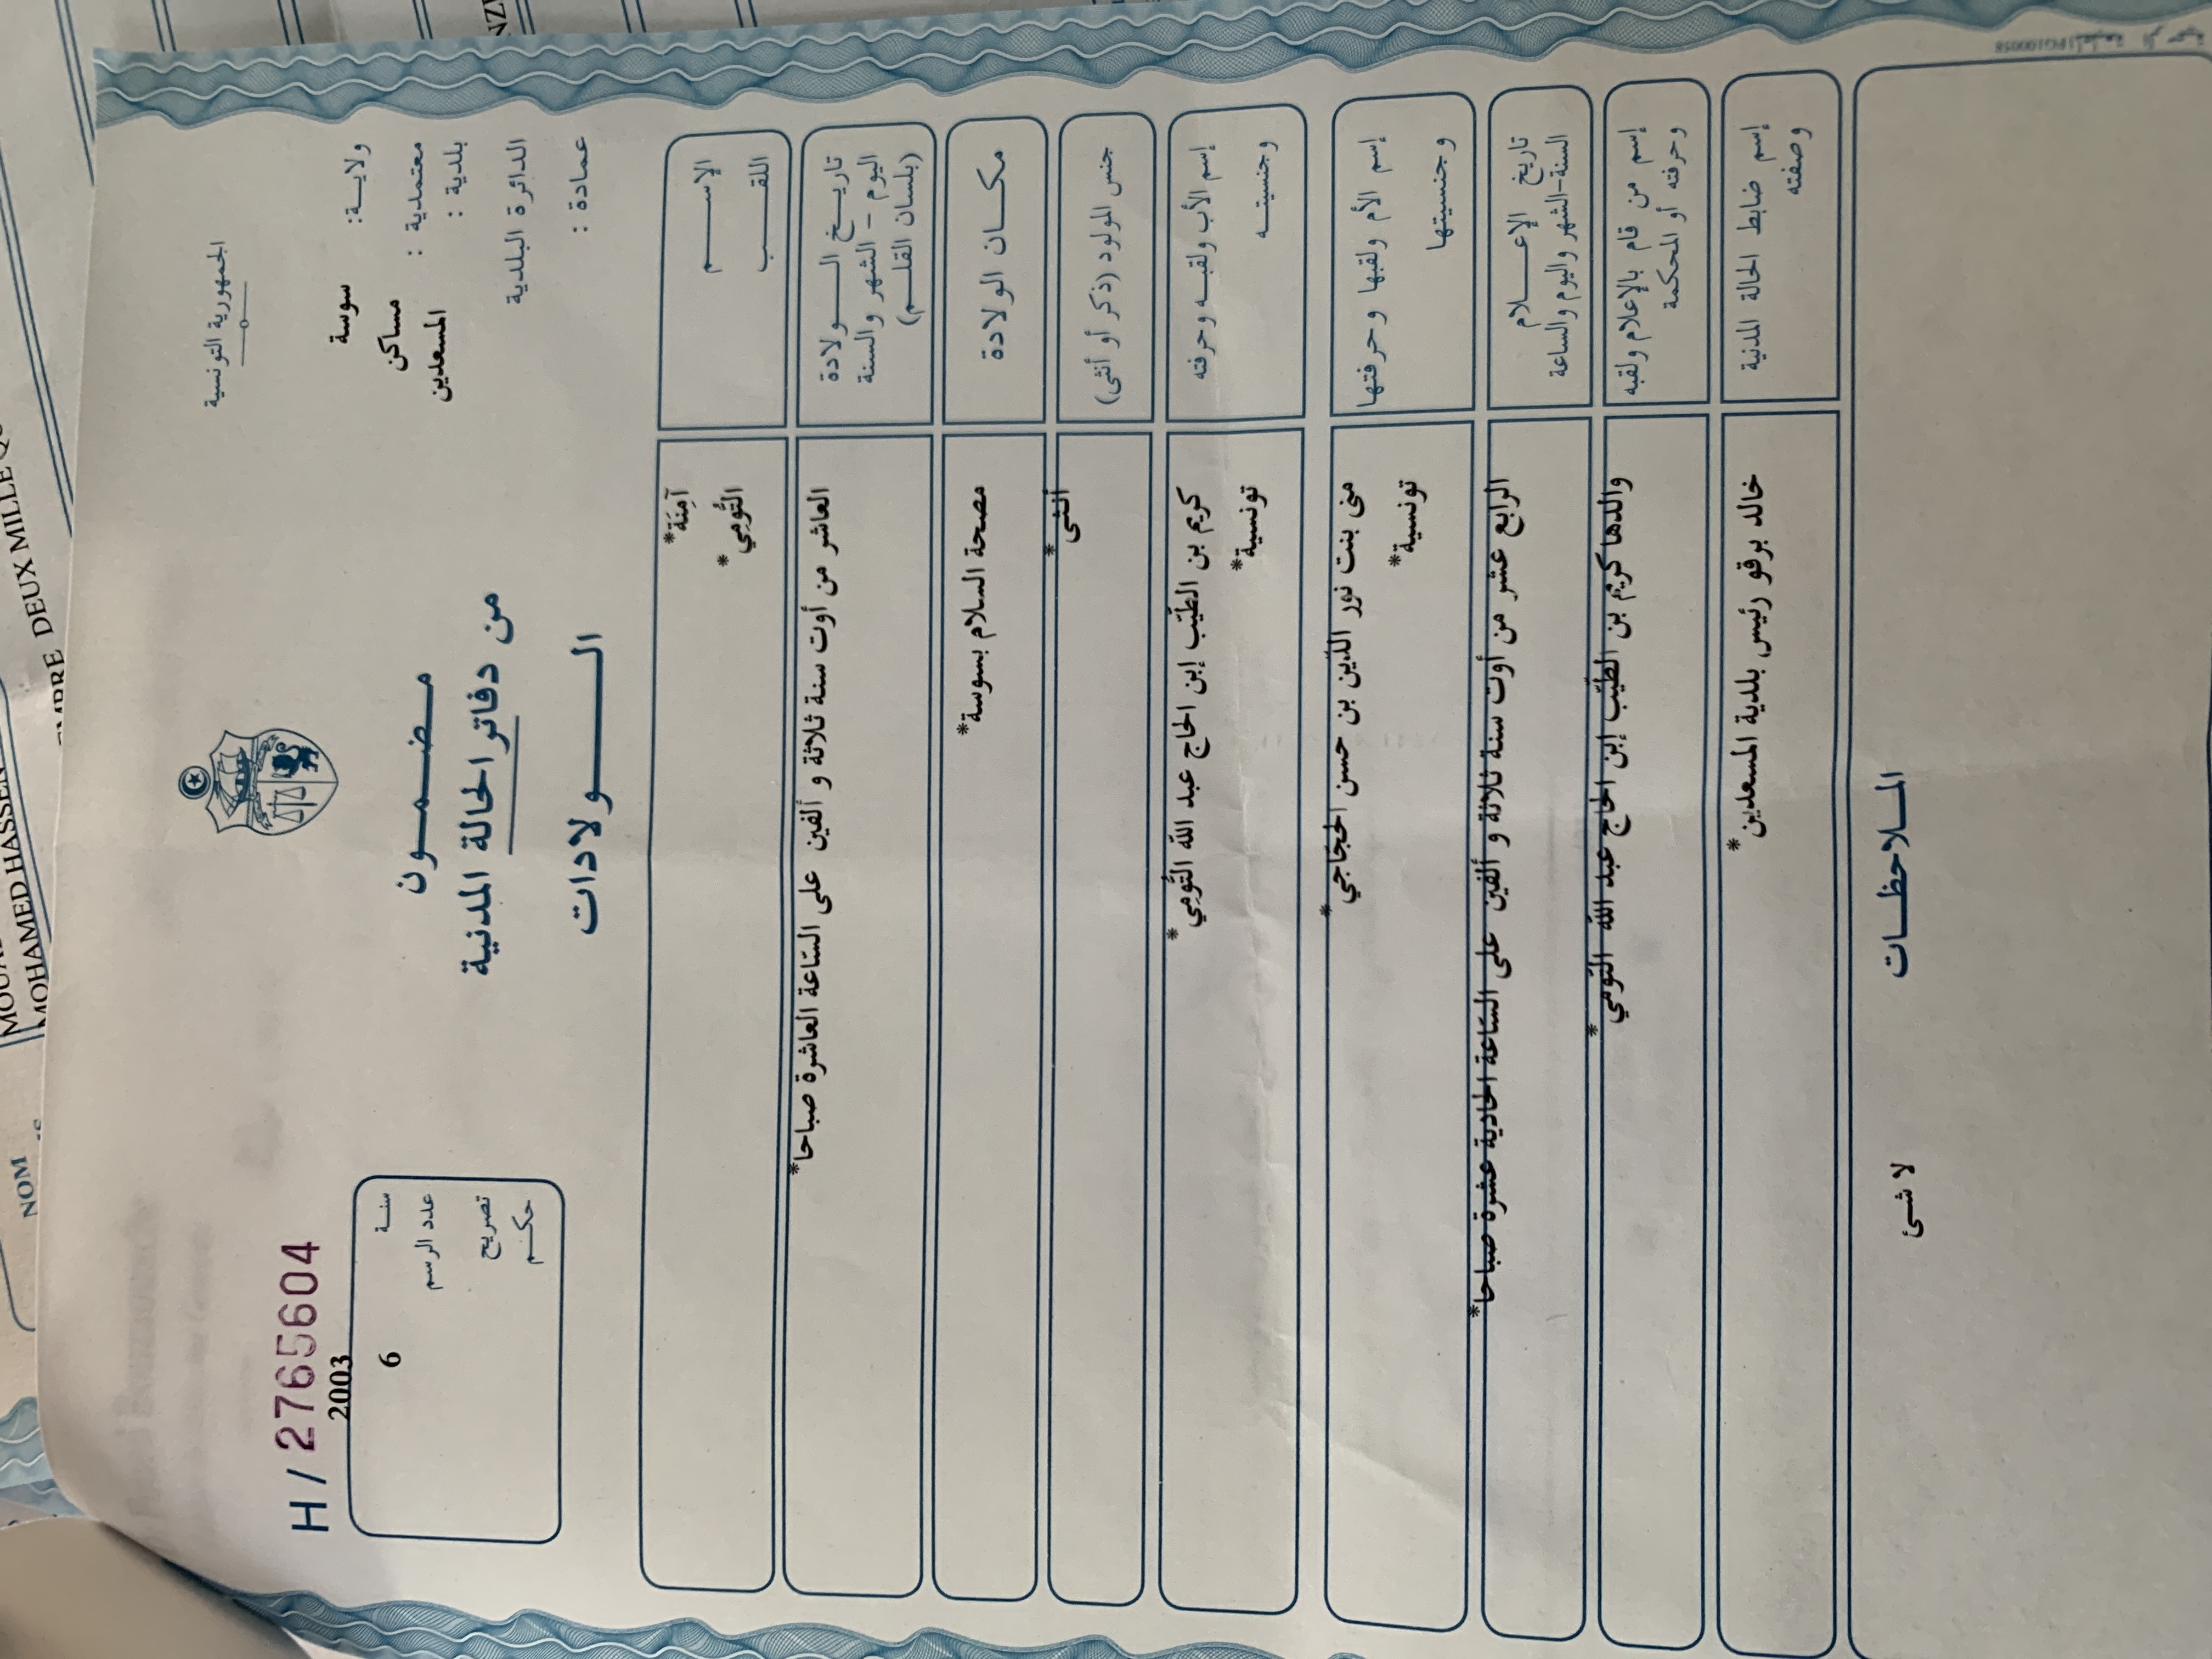 الجمهورية التونسية
H / 2765604
ولاية: سوسة
معتمدية : مساكن
بلدية : المسعدين
الدائرة البلدية
عمادة :
2003
سنة
6
عدد الرسم
تصريح
حكم
مضمون
من دفاتر الحالة المدنية
الولادات
الإسم
آمِنَة*
اللقب
التُومِي*
تاريخ الولادة
اليوم - الشهر والسنة
(بلسان القلم)
العاشر من أوت سنة ثلاثة و ألفين على السّاعة العاشرة صباحا*
مكان الولادة
مصحة السلام بسوسة*
جنس المولود (ذكر أو أنثى)
أنثى*
إسم الأب ولقبه وحرفته
كريم بن الطيّب إبن الحاج عبد الله التُومِي*
وجنسيته
تونسية*
إسم الأم ولقبها وحرفتها
منى بنت نور الدّين بن حسن الحجّاجي*
وجنسيتها
تونسية*
تاريخ الإعلام
السنة-الشهر واليوم والساعة
الرابع عشر من أوت سنة ثلاثة و ألفين على السّاعة الحادية عشرة صباحا*
إسم من قام بالإعلام ولقبه
وحرفته أو المحكمة
والدها كريم بن الطيّب إبن الحاج عبد الله التومي*
إسم ضابط الحالة المدنية
وصفته
خالد برقو رئيس بلدية المسعدين*
الملاحظات
لا شئ
NOM
MOHAMED HASSEN
DEUX MILLE